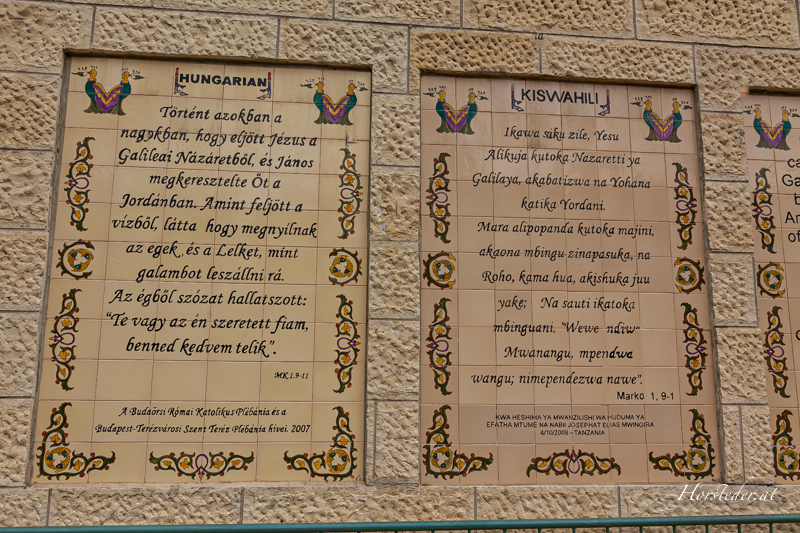 HUNGARIAN
Történt azokban a
nagykban, hogy eljött Jézus a
Galileai Názáretből, és János
megkeresztelte Őt a
Jordánban. Amint feljött a
vízből, látta hogy megnyílnak
az egek és a Lelket, mint
galambot leszállni rá.
Az égből szózat hallatszott:
“Te vagy az én szeretett fiam,
benned kedvem telik”.
MK 1.9-11
A Budaörsi Római Katolikus Plébánia és a
Budapest-Terézvárosi Szent Teréz Plébánia hívei. 2007
KISWAHILI
Ikawa siku zile, Yesu
Alikuja kutoka Nazaretti ya
Galilaya, akabatizwa na Yohana
katika Yordani.
Mara alipopanda kutoka majini,
akaona mbingu zinapasuka, na
Roho, kama hua, akishuka juu
yake; Na sauti ikatoka
mbinguani, "Wewe ndiw
Mwanangu, mpendwa
wangu; nimependezwa nawe".
Marko 1, 9-1
KWA HESHIMA YA MWANZILISHI WA HUDUMA YA
EFATHA MTUME NA NABII JOSEPHAT ELIAS MWINGIRA
4/10/2008 - TANZANIA
ca
Ga
b
Ar
of
Horsteder.at